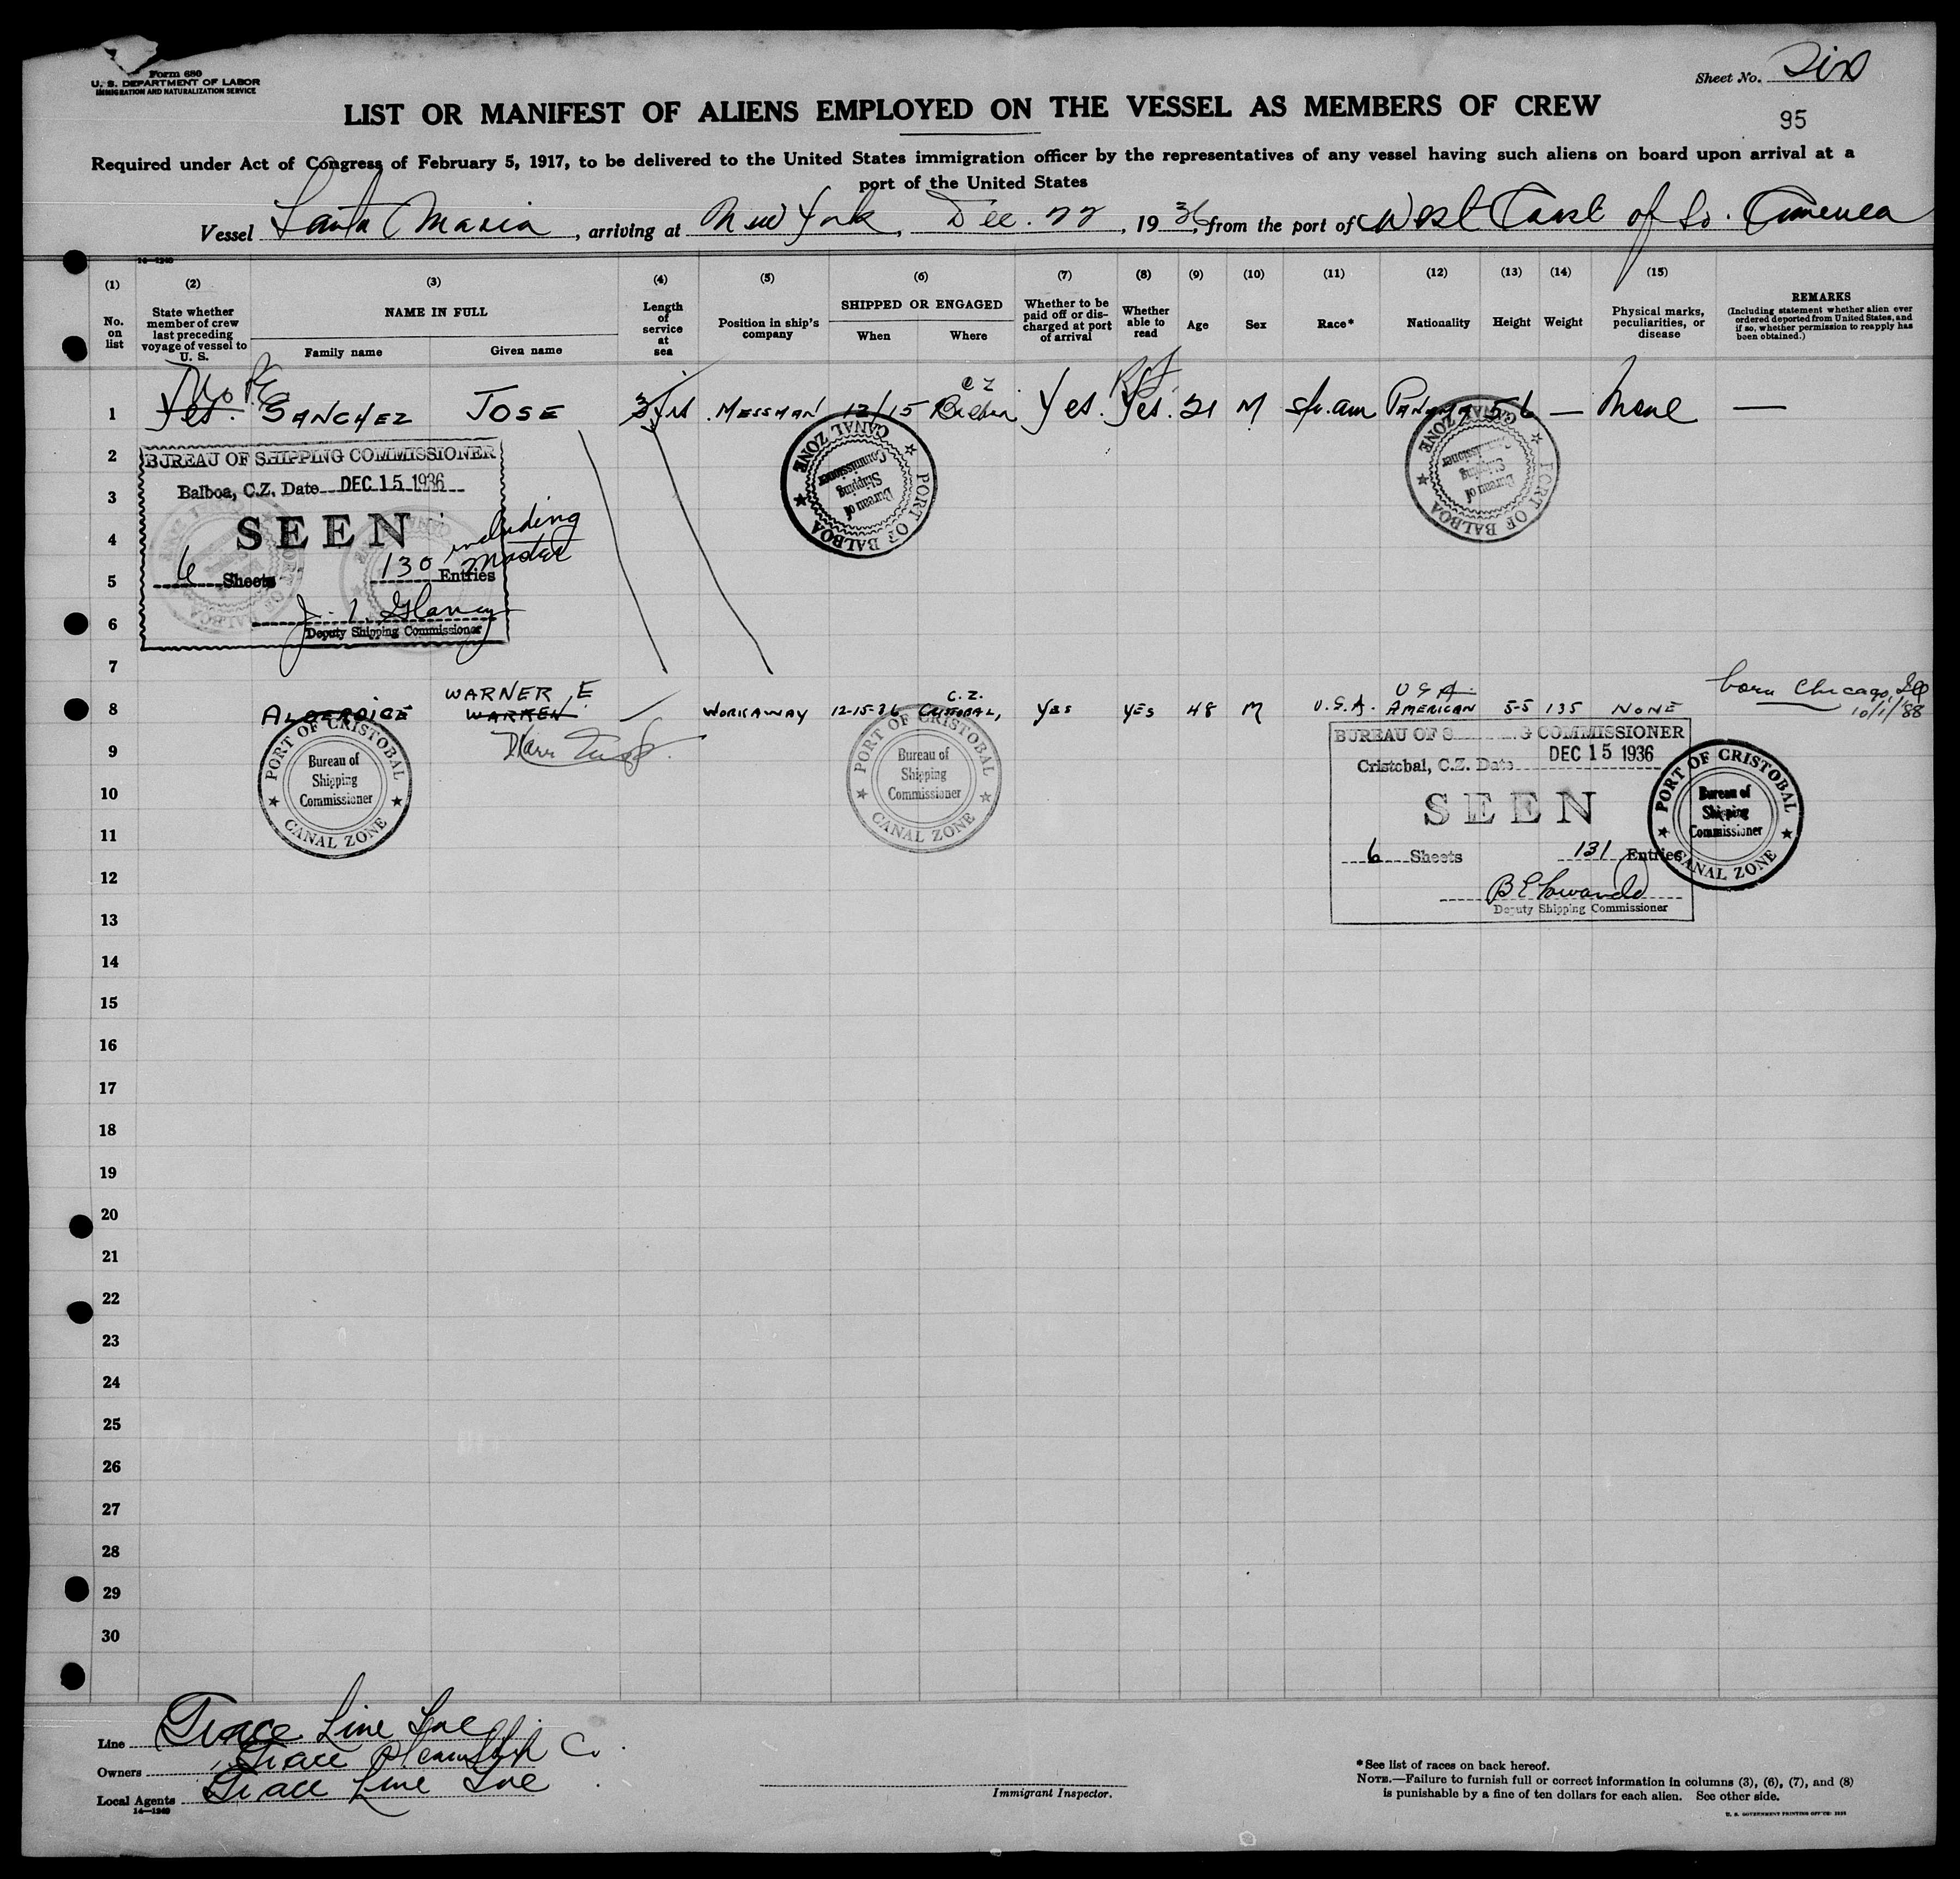 Form 680
U. S. DEPARTMENT OF LABOR
IMMIGRATION AND NATURALIZATION SERVICE
Sheet No. Six
LIST OR MANIFEST OF ALIENS EMPLOYED ON THE VESSEL AS MEMBERS OF CREW
95
Required under Act of Congress of February 5, 1917, to be delivered to the United States immigration officer by the representatives of any vessel having such aliens on board upon arrival at a
port of the United States
Vessel Santa Maria, arriving at New York, Dec. 22, 1936, from the port of West Coast of So. America
14—1240
(1) (2) (3) (4) (5) (6) (7) (8) (9) (10) (11) (12) (13) (14) (15)
No. on list
State whether member of crew last preceding voyage of vessel to U. S.
NAME IN FULL
Family name
Given name
Length of service at sea
Position in ship's company
SHIPPED OR ENGAGED
When
Where
Whether to be paid off or discharged at port of arrival
Whether able to read
Age
Sex
Race*
Nationality
Height
Weight
Physical marks, peculiarities, or disease
REMARKS
(Including statement whether alien ever ordered deported from United States, and if so, whether permission to reapply has been obtained.)
No
CZ
1 Yes. SANCHEZ JOSE 3 yrs MESSMAN 12/15 Balboa Yes. Yes. 21 M Sp. am PANAMA 5 6 — None —
2
BUREAU OF SHIPPING COMMISSIONER
Balboa, C.Z. Date DEC 15 1936
SEEN
6 Sheets 130 Entries
including Master
Deputy Shipping Commissioner
PORT OF BALBOA
CANAL ZONE
Bureau of
Shipping
Commissioner
PORT OF BALBOA
CANAL ZONE
Bureau of
Shipping
Commissioner
3
4
5
6
7
WARNER E. C.Z. U S A. born Chicago, Ill
8 ALDERDICE WARREN WORKAWAY 12-15-36 CRISTOBAL, YES YES 48 M U.S.A. AMERICAN 5-5 135 NONE 10/1/'88
PORT OF CRISTOBAL
Bureau of
Shipping
Commissioner
CANAL ZONE
PORT OF CRISTOBAL
Bureau of
Shipping
Commissioner
CANAL ZONE
BUREAU OF S G COMMISSIONER
Cristobal, C.Z. Date DEC 15 1936
SEEN
6 Sheets 131 Entries
Deputy Shipping Commissioner
PORT OF CRISTOBAL
Bureau of
Shipping
Commissioner
CANAL ZONE
9
10
11
12
13
14
15
16
17
18
19
20
21
22
23
24
25
26
27
28
29
30
Line Grace Line Inc
Owners Grace Steamship Co.
Local Agents Grace Line Inc
14—1240
Immigrant Inspector.
*See list of races on back hereof.
NOTE.—Failure to furnish full or correct information in columns (3), (6), (7), and (8)
is punishable by a fine of ten dollars for each alien. See other side.
U. S. GOVERNMENT PRINTING OFFICE: